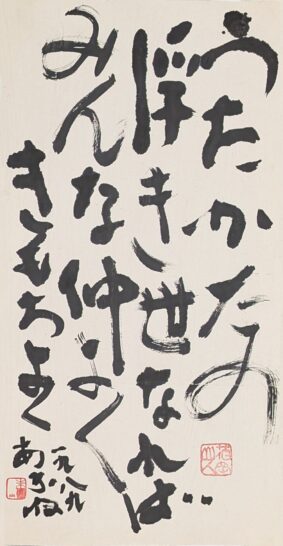 うたかたの
浮き世なれば
みんな仲よく
きもちよく
一九八九